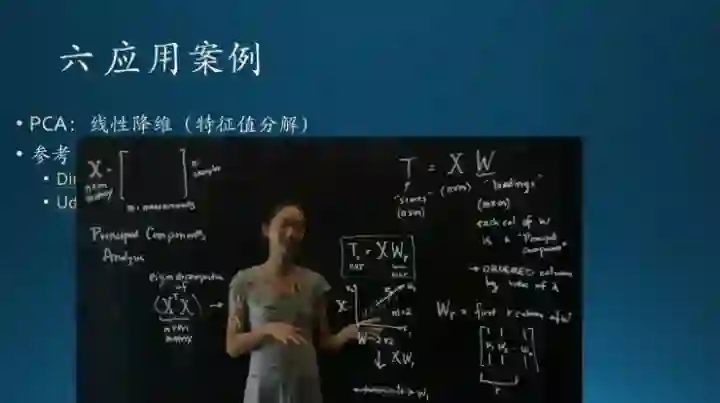 六 应用案例
• PCA：线性降维（特征值分解）
• 参考
• Din
• Ud
X =
n×m matrix
n samples
m measurements
Principal Components Analysis
eigendecomposition of
(XᵀX) →
m×m matrix
T = X W
"scores" (n×m)
(n×m)
"loadings" (m×m)
each col of W
is a "Principal
component"
→ ORDERED columns
by value of λ
Tᵣ = X Wᵣ
n×r
m×r
X:
m=2
W → 2×2
↓ X W₁
Wᵣ = first r columns of W
r